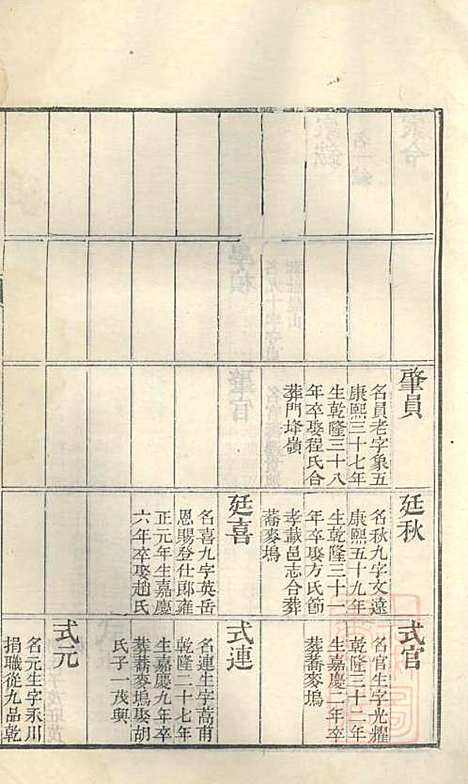 肇員
名員老字象五
康熙三十七年
生乾隆三十八
年卒娶程氏合
葬門埄嶺
廷秋
名秋九字文遠
康熙五十九年
生乾隆三十一
年卒娶方氏節
孝載邑志合葬
蕎麥塢
廷喜
名喜九字英岳
恩賜登仕郎雍
正元年生嘉慶
六年卒娶趙氏
式官
名官生字光耀
乾隆三十二年
生嘉慶二年卒
葬蕎麥塢
式連
名連生字蒿甫
乾隆二十七年
生嘉慶九年卒
葬蕎麥塢娶胡
氏子一茂興
式元
名元生字永川
捐職從九品乾